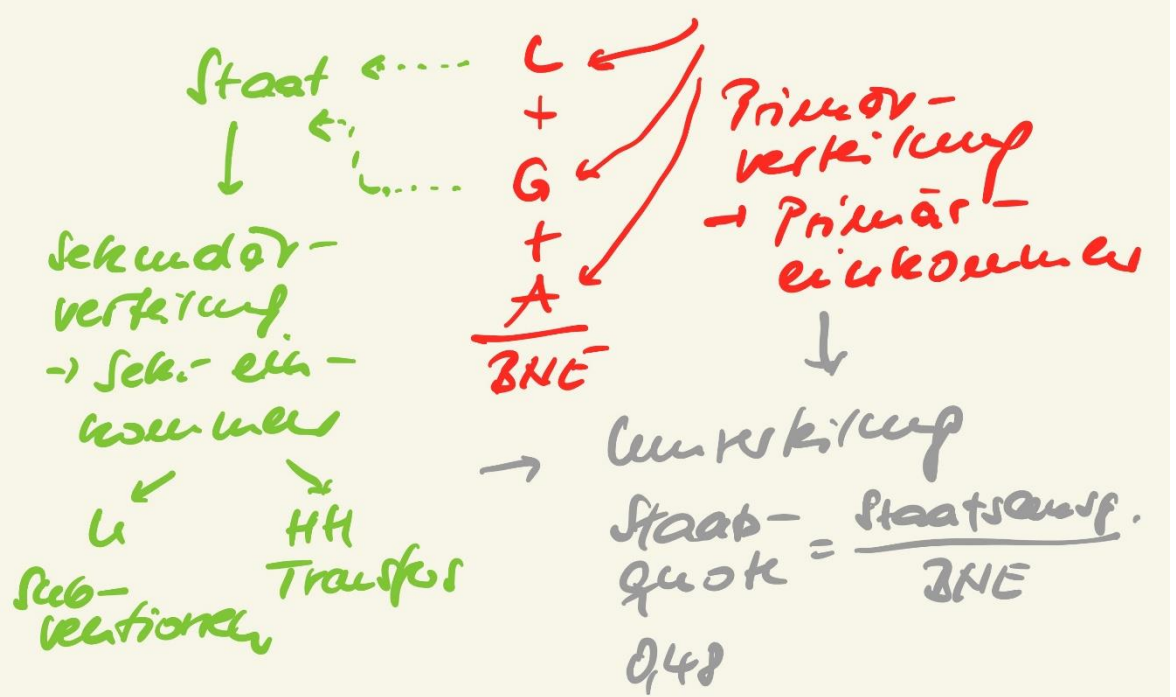 Staat
Sekundär-
verteilung
→ Sek.-ein-
kommen
U
Sub-
ventionen
HH
Transfers
L
+
G
+
A
BNE
Primär-
verteilung
→ Primär-
einkommen
→ Umverteilung
Staats-
quote = Staatsausg.
BNE
0,48